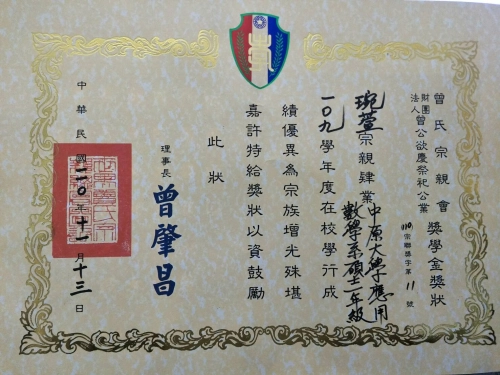 曾氏宗親會
財團法人曾公欲慶祭祀公業
獎學金獎狀
110宗聯獎字第11號
琬萱宗親肄業中原大學應用數學系碩士一年級
一〇九學年度在校學行成
績優異為宗族增光殊堪
嘉許特給獎狀以資鼓勵
此狀
理事長 曾肇昌
中華民國一一〇年十一月十三日